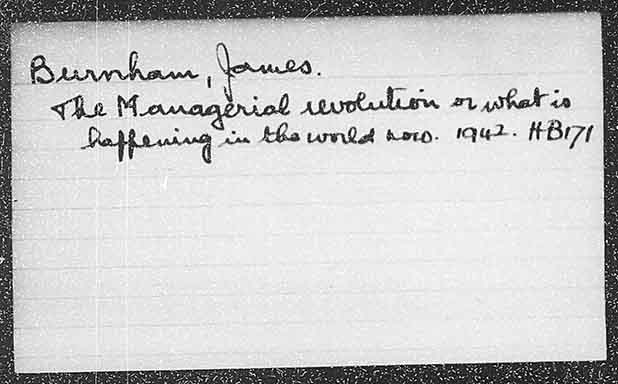 Burnham, James.
The Managerial revolution or what is
happening in the world now. 1942. HB171